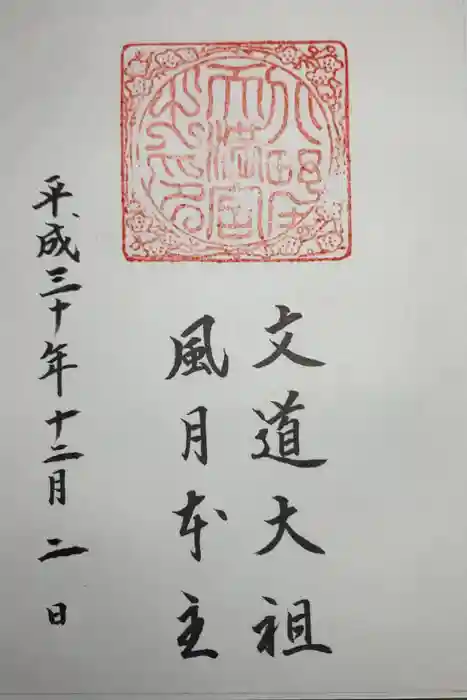 天満宮
文道大祖
風月本主
平成三十年十二月二日